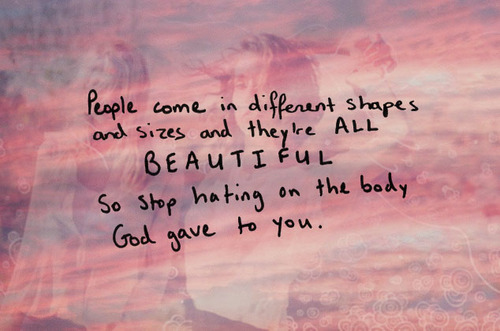 People come in different shapes
and sizes and they're ALL
BEAUTIFUL
So stop hating on the body
God gave to you.